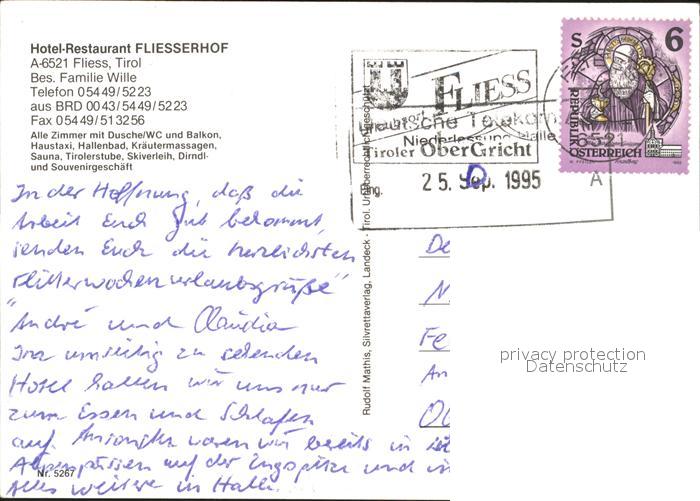 Hotel-Restaurant FLIESSERHOF
A-6521 Fliess, Tirol
Bes. Familie Wille
Telefon 05449/5223
aus BRD 0043/5449/5223
Fax 05449/513256
Alle Zimmer mit Dusche/WC und Balkon,
Haustaxi, Hallenbad, Kräutermassagen,
Sauna, Tirolerstube, Skiverleih, Dirndl-
und Souvenirgeschäft
In der Hoffnung, daß die
Arbeit Euch gut bekommt,
senden Euch die herzlichsten
"Flitterwochenurlaubsgrüße"
André und Claudia
Im umseitig zu sehenden
Hotel haben wir uns nur
zum Essen und Schlafen
auf. Ansonsten waren wir bereits in
Alpenpässen auf der Zugspitze und
Alles weitere in Halle.
Nr. 5267
Rudolf Mathis, Silvrettaverlag, Landeck - Tirol. Urheberrechtlich geschützt
FLIESS
Deutsche Telekom
Niederlassung Halle
Tiroler OberGricht
Eing. 25. Sep. 1995
6521
A
S 6
REPUBLIK
ÖSTERREICH
De
N
Fe
An
privacy protection
Datenschutz